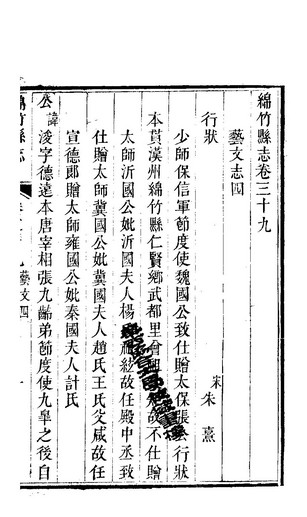 綿竹縣志卷三十九
藝文志四
行狀
宋朱熹
少師保信軍節度使魏國公致仕贈太保張公行狀
本貫漢州綿竹縣仁賢鄉武都里曾祖 故不仕贈
太師沂國公妣沂國夫人楊 祖紘故任殿中丞致
仕贈太師冀國公妣冀國夫人趙氏王氏父咸故任
宣德郎贈太師雍國公妣秦國夫人計氏
公諱浚字德遠本唐宰相張九齡弟節度使九皋之後自
綿竹縣志
藝文四